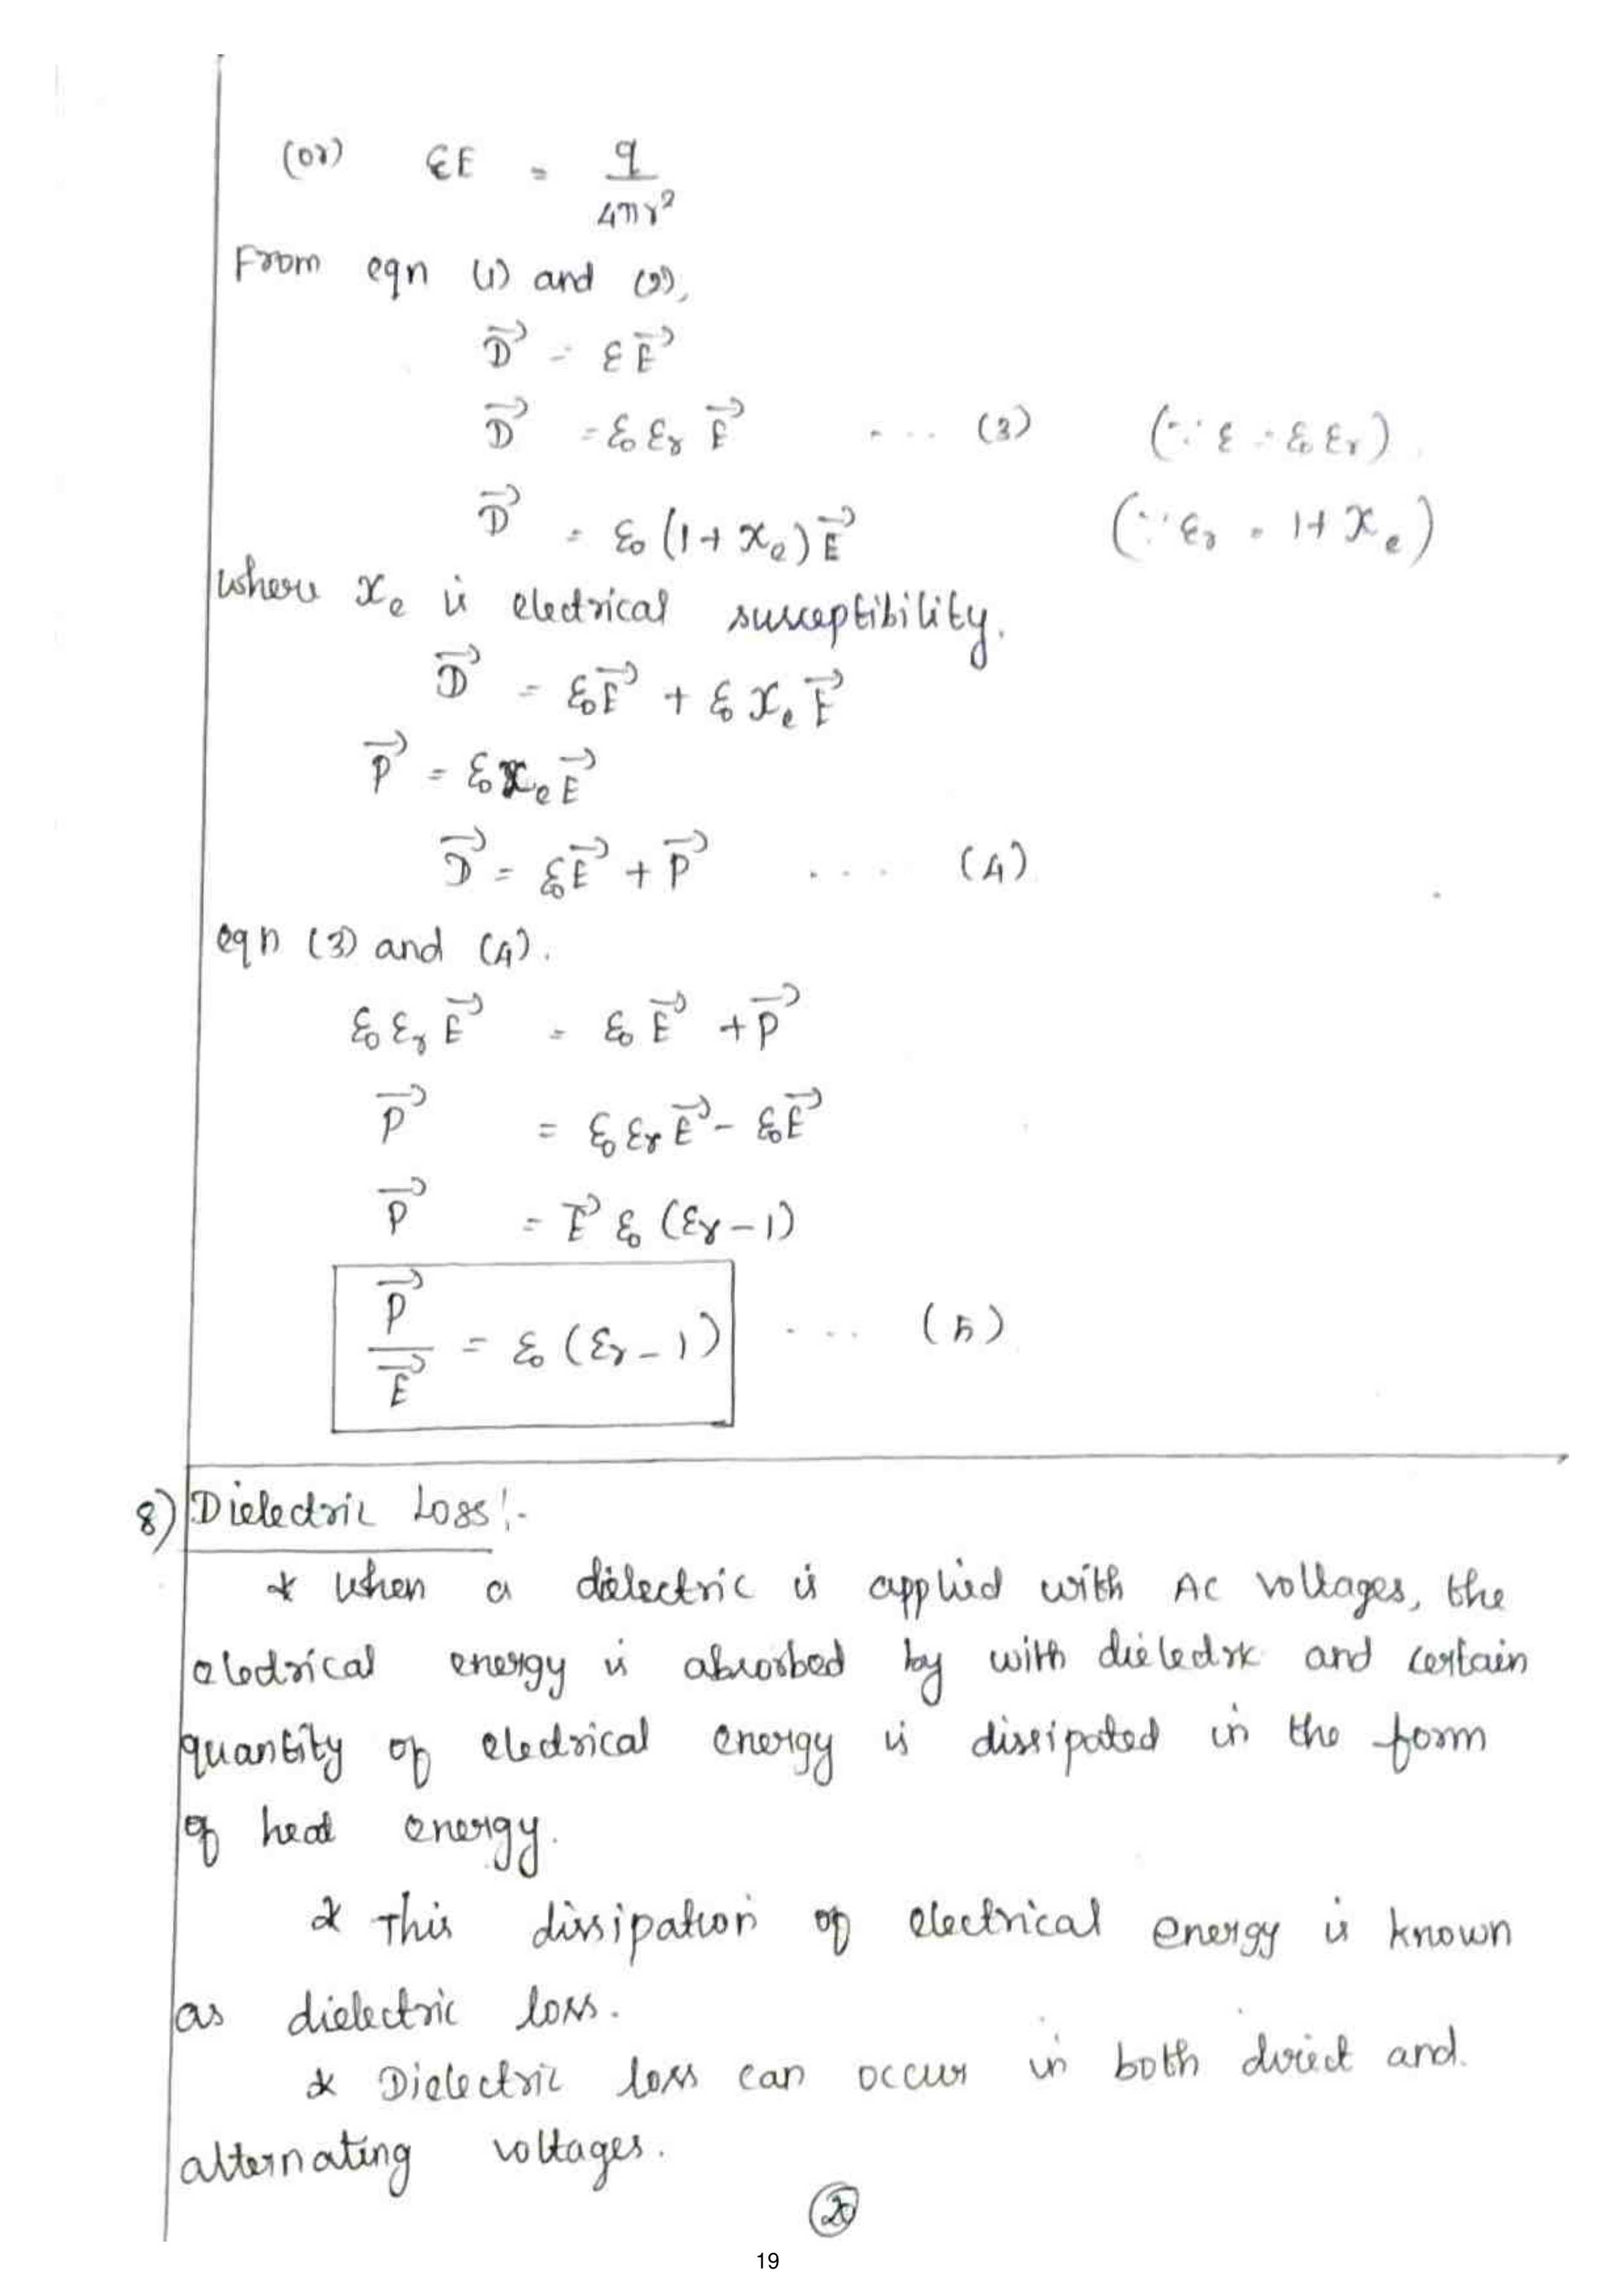 (or) εE = q / 4πr²
From eqn (1) and (2),
D⃗ = εE⃗
D⃗ = ε₀ εr E⃗ .... (3) (∵ ε = ε₀ εr)
D⃗ = ε₀ (1 + χe) E⃗ (∵ εr = 1 + χe)
Where χe is electrical susceptibility.
D⃗ = ε₀E⃗ + ε₀ χe E⃗
P⃗ = ε₀ χe E⃗
D⃗ = ε₀E⃗ + P⃗ .... (4)
eqn (3) and (4).
ε₀ εr E⃗ = ε₀ E⃗ + P⃗
P⃗ = ε₀ εr E⃗ - ε₀E⃗
P⃗ = E⃗ ε₀ (εr - 1)
P⃗ / E⃗ = ε₀ (εr - 1) .... (5)
8) Dielectric Loss:-
* When a dielectric is applied with AC voltages, the
electrical energy is absorbed by with dieledric and certain
quantity of electrical energy is dissipated in the form
of heat energy.
* This dissipation of electrical energy is known
as dielectric loss.
* Dielectric loss can occur in both direct and
alternating voltages.
20
19